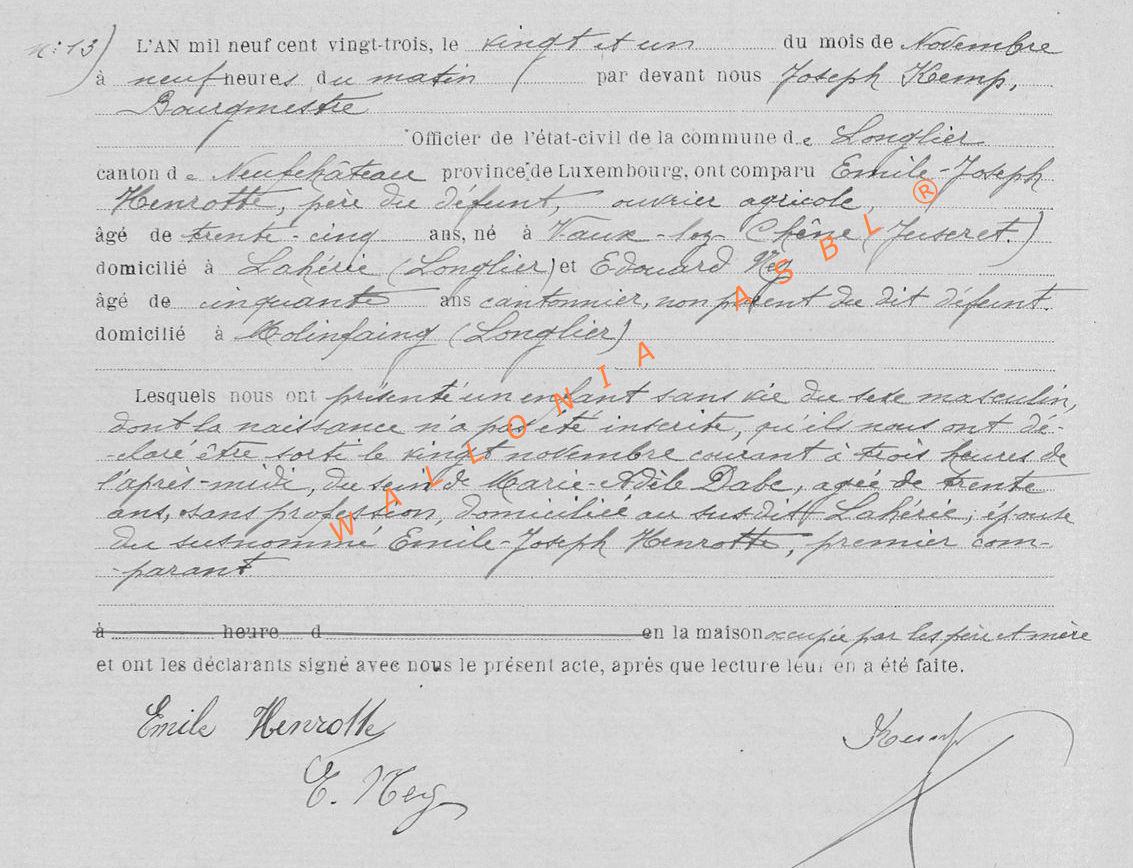 n: 13) L'AN mil neuf cent vingt-trois, le vingt et un du mois de Novembre
à neuf heures du matin par devant nous Joseph Kemp,
Bourgmestre
Officier de l'état-civil de la commune de Longlier
canton de Neufchâteau province de Luxembourg, ont comparu Emile-Joseph
Henrotte, père du défunt, ouvrier agricole,
âgé de trente-cinq ans, né à Vaux-lez-Chêne (Juseret.)
domicilié à Lahérie (Longlier) et Edouard Ney
âgé de cinquante ans cantonnier, non parent du dit défunt.
domicilié à Molinfaing (Longlier)
Lesquels nous ont présenté un enfant sans vie du sexe masculin,
dont la naissance n'a pas été inscrite, qu'ils nous ont dé-
-claré être sorti le vingt novembre courant à trois heures de
l'après-midi, du sein de Marie-Adèle Dabe, agée de trente
ans, sans profession, domiciliée au susdit Lahérie, épouse
du susnommé Emile-Joseph Henrotte, premier com-
-parant
à heure d en la maison occupée par les père et mère
et ont les déclarants signé avec nous le présent acte, après que lecture leur en a été faite.
Emile Henrotte
Kemp
E. Ney
WALLONIA ASBL ®